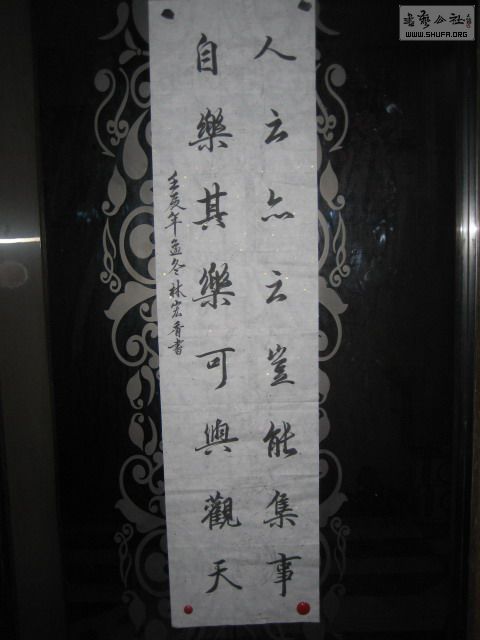 书艺公社
WWW.SHUFA.ORG
人云亦云豈能集事
自樂其樂可與觀天
年孟冬林宏書